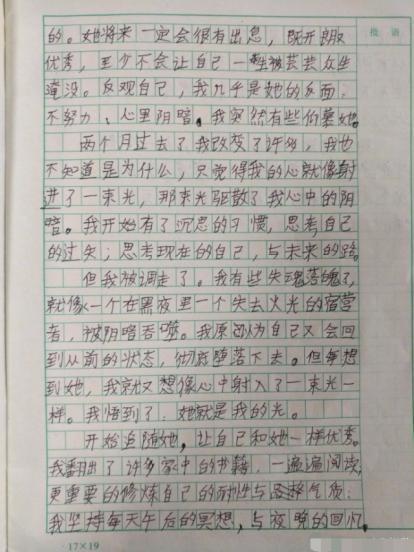 批语
的。她将来一定会很有出息，既开朗又
优秀，至少不会让自己一生被芸芸众生
淹没。反观自己，我几乎是她的反面：
不努力、心里阴暗。我突然有些怕慕她。
两个月过去了我改变了许多，我也
不知道是为什么，只觉得我的心就像射
进了一束光，那束光驱散了我心中的阴
暗。我开始有了沉思的习惯，思考自己
的过失；思考现在的自己，与未来的路。
但我被调走了。我有些失魂落魄了，
就像一个在黑夜里一个失去火光的宿营
者，被阴暗吞噬。我原以为自己又会回
到从前的状态，彻底堕落下去。但每想
到她，我就又想像心中射入了一束光一
样。我悟到了：她就是我的光。
开始追随她，让自己和她一样优秀。
我翻出了许多家中的书籍，一遍遍阅读，
更重要的修炼自己的耐性与安静气质：
我坚持每天午后的冥想，与夜晚的回忆，
17×19